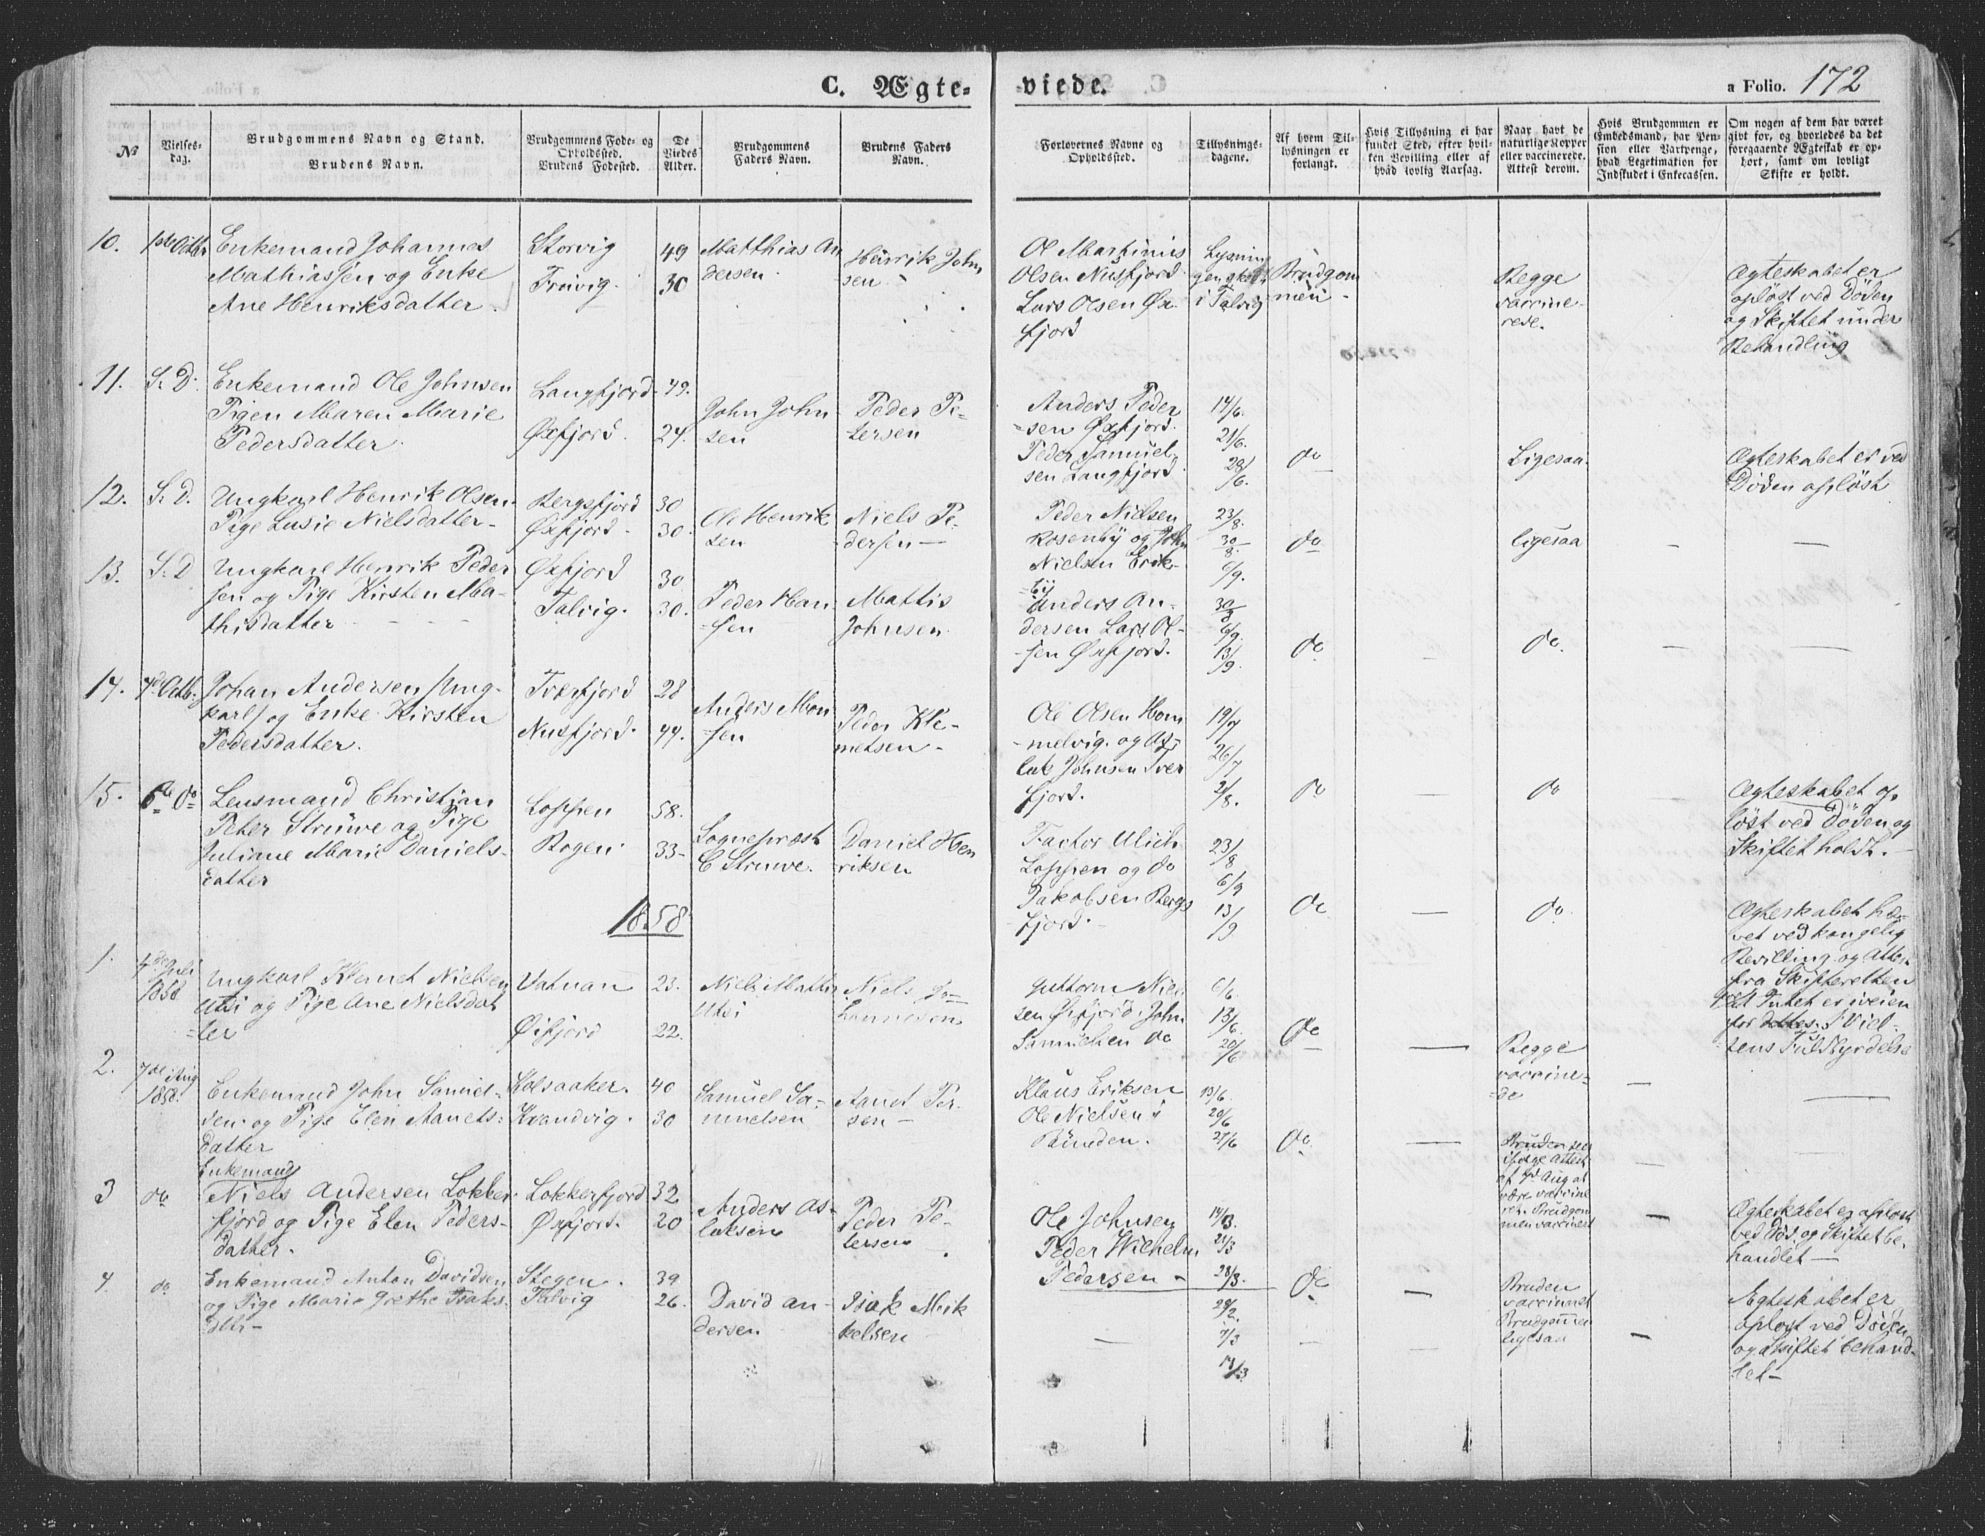 C. Ægte-
viede.
a Folio. 172
No
Vielses-
dag.
Brudgommens Navn og Stand.
Brudens Navn.
Brudgommens Føde- og
Opholdssted.
Brudens Fødested.
De
Viedes
Alder.
Brudgommens
Faders Navn.
Brudens Faders
Navn.
Forlovernes Navne og
Opholdssted.
Tillysnings-
dagene.
Af hvem Til-
lysningen er
forlangt.
Hvis Tillysning ei har
fundet Sted, efter hvil-
ken Bevilling eller af
hvad lovlig Aarsag.
Naar havt de
naturlige Kopper
eller vaccinerede.
Attest derom.
Hvis Brudgommen er
Embedsmand, har Pen-
sion eller Vartpenge,
hvad Legitimation for
Indskudet i Enkecassen.
Om nogen af dem har været
givt for, og hvorledes da det
foregaaende Ægteskab er op-
hørt, samt om lovligt
Skifte er holdt.
10.
Enkemand Johannes
Mathiassen og Enke
Ane Henriksdatter.
Storvig
Frivig.
49
30
Matthias An
dersen
Henrik John
sen
Ol Marthinus
Olsen Nusfjord
Lars Olsen Øx
fjord
Lysnin
i Talvig
Brudgom
men
Begge
vaccine-
rede.
Ægteskabet er
opløst ved Døden
og Skiftet under
Behandling
11. S. D.
Enkemand Ole Johnsen
Pigen Maren Marie
Pedersdatter.
Langfjord
Øxfjord.
49.
24.
John John
sen
Peder Pe-
tersen
Anders Peder
sen Øxfjord.
Peder Samuel
sen Langfjord
14/6.
21/6.
28/6.
do
Ligesaa
Ægteskabet er ved
Døden opløst
12. S. D.
Ungkarl Henrik Olsen
Pige Lusie Nielsdatter-
Bergsfjord
Øxfjord-
30
30.
Ole Henrik
sen
Niels Pe-
dersen
Peder Nielsen
Rosenby og John
Nielsen Erik-
by
23/8.
30/8.
6/9.
do
ligesaa
13. S. D
Ungkarl Henrik Peder
sen og Pige Kirsten Ma-
thisdatter
Øxfjord
Talvig.
30
30.
Peder Han
sen
Mattis
Johnsen
Anders An-
dersen Lars Ol-
sen Øxfjord.
30/8
6/9.
13/9.
do
do.
14.
Johan Andersen Ung-
karl og Enke Kirsten
Pedersdatter.
Tverfjord
Nusfjord.
28
44.
Anders Mon
sen
Peder Kle-
metsen-
Ole Olsen Hom
melvig. og As-
lak Johnsen Tver
fjord.
19/7
26/7
2/8.
do
do
Ægteskabet op
løst ved Døden og
Skiftet holdt.
15.
Lensmand Christian
Peter Struwe og Pige
Juliane Marie Daniels-
datter
Loppen
Bogen.
58.
33-
Sognepræst
C Struwe.
Daniel Hen
riksen
Factor Ulich
Loppen og do
Jakobsen Bergs
fjord.
23/8
6/9
13/9
do
do.
Ægteskabet hæ-
vet ved kongelig
Bevilling og Attest
fra Skifteretten
at Intet er iveien
for dettes Viel-
sens Fuldbyrdelse
1858
1.
4de Juli
1858
Ungkarl Klemet Nielsen
Utsi og Pige Ane Nielsdat
ter
Vatnan
Øxfjord
23.
22.
Niels Matti
Utsi
Niels Jo
hannesen
Guttorm Niel
sen Øxfjord. John
Samuelsen do
6/6.
13/6.
20/6
do
Begge
vaccine-
de
2.
7de Aug
1858.
Enkemand John Samuel-
sen. og Pige Elen Aanets-
datter
Kolsaaker.
Kvandvig.
40
30
Samuel Sa-
muelsen
Aanet Per-
sen-
Klaus Eriksen
Ole Nielsen i
Bunden.
13/6.
20/6
27/6
do
Bruden
ifølge Attest
af
være vaccine
ret. Brudgom
men vaccineret
3
do
Enkemand
Niels Andersen Lokker
fjord og Pige Elen Peders-
datter.
Lokkerfjord
Øxfjord.
32
20
Anders As-
laksen
Peder Pe-
tersen
Ole Johnsen
Peder Wilhelm
Pedersen-
14/3.
21/3
28/3.
do
Ægteskabet er opløst
ved Død. og Skiftet be-
handlet
4
do
Enkemand Anton Davidsen
og Pige Marie Grethe Isaks-
dtr-
Stegen.
Talvig
39
26.
David An-
dersen
Isak Mik
kelsen
29/2.
7/3
14/3
Bruden
vaccinret
Brudgommen
ligesaa
Ægteskabet er
opløst ved Døden
og skiftet behand-
let-